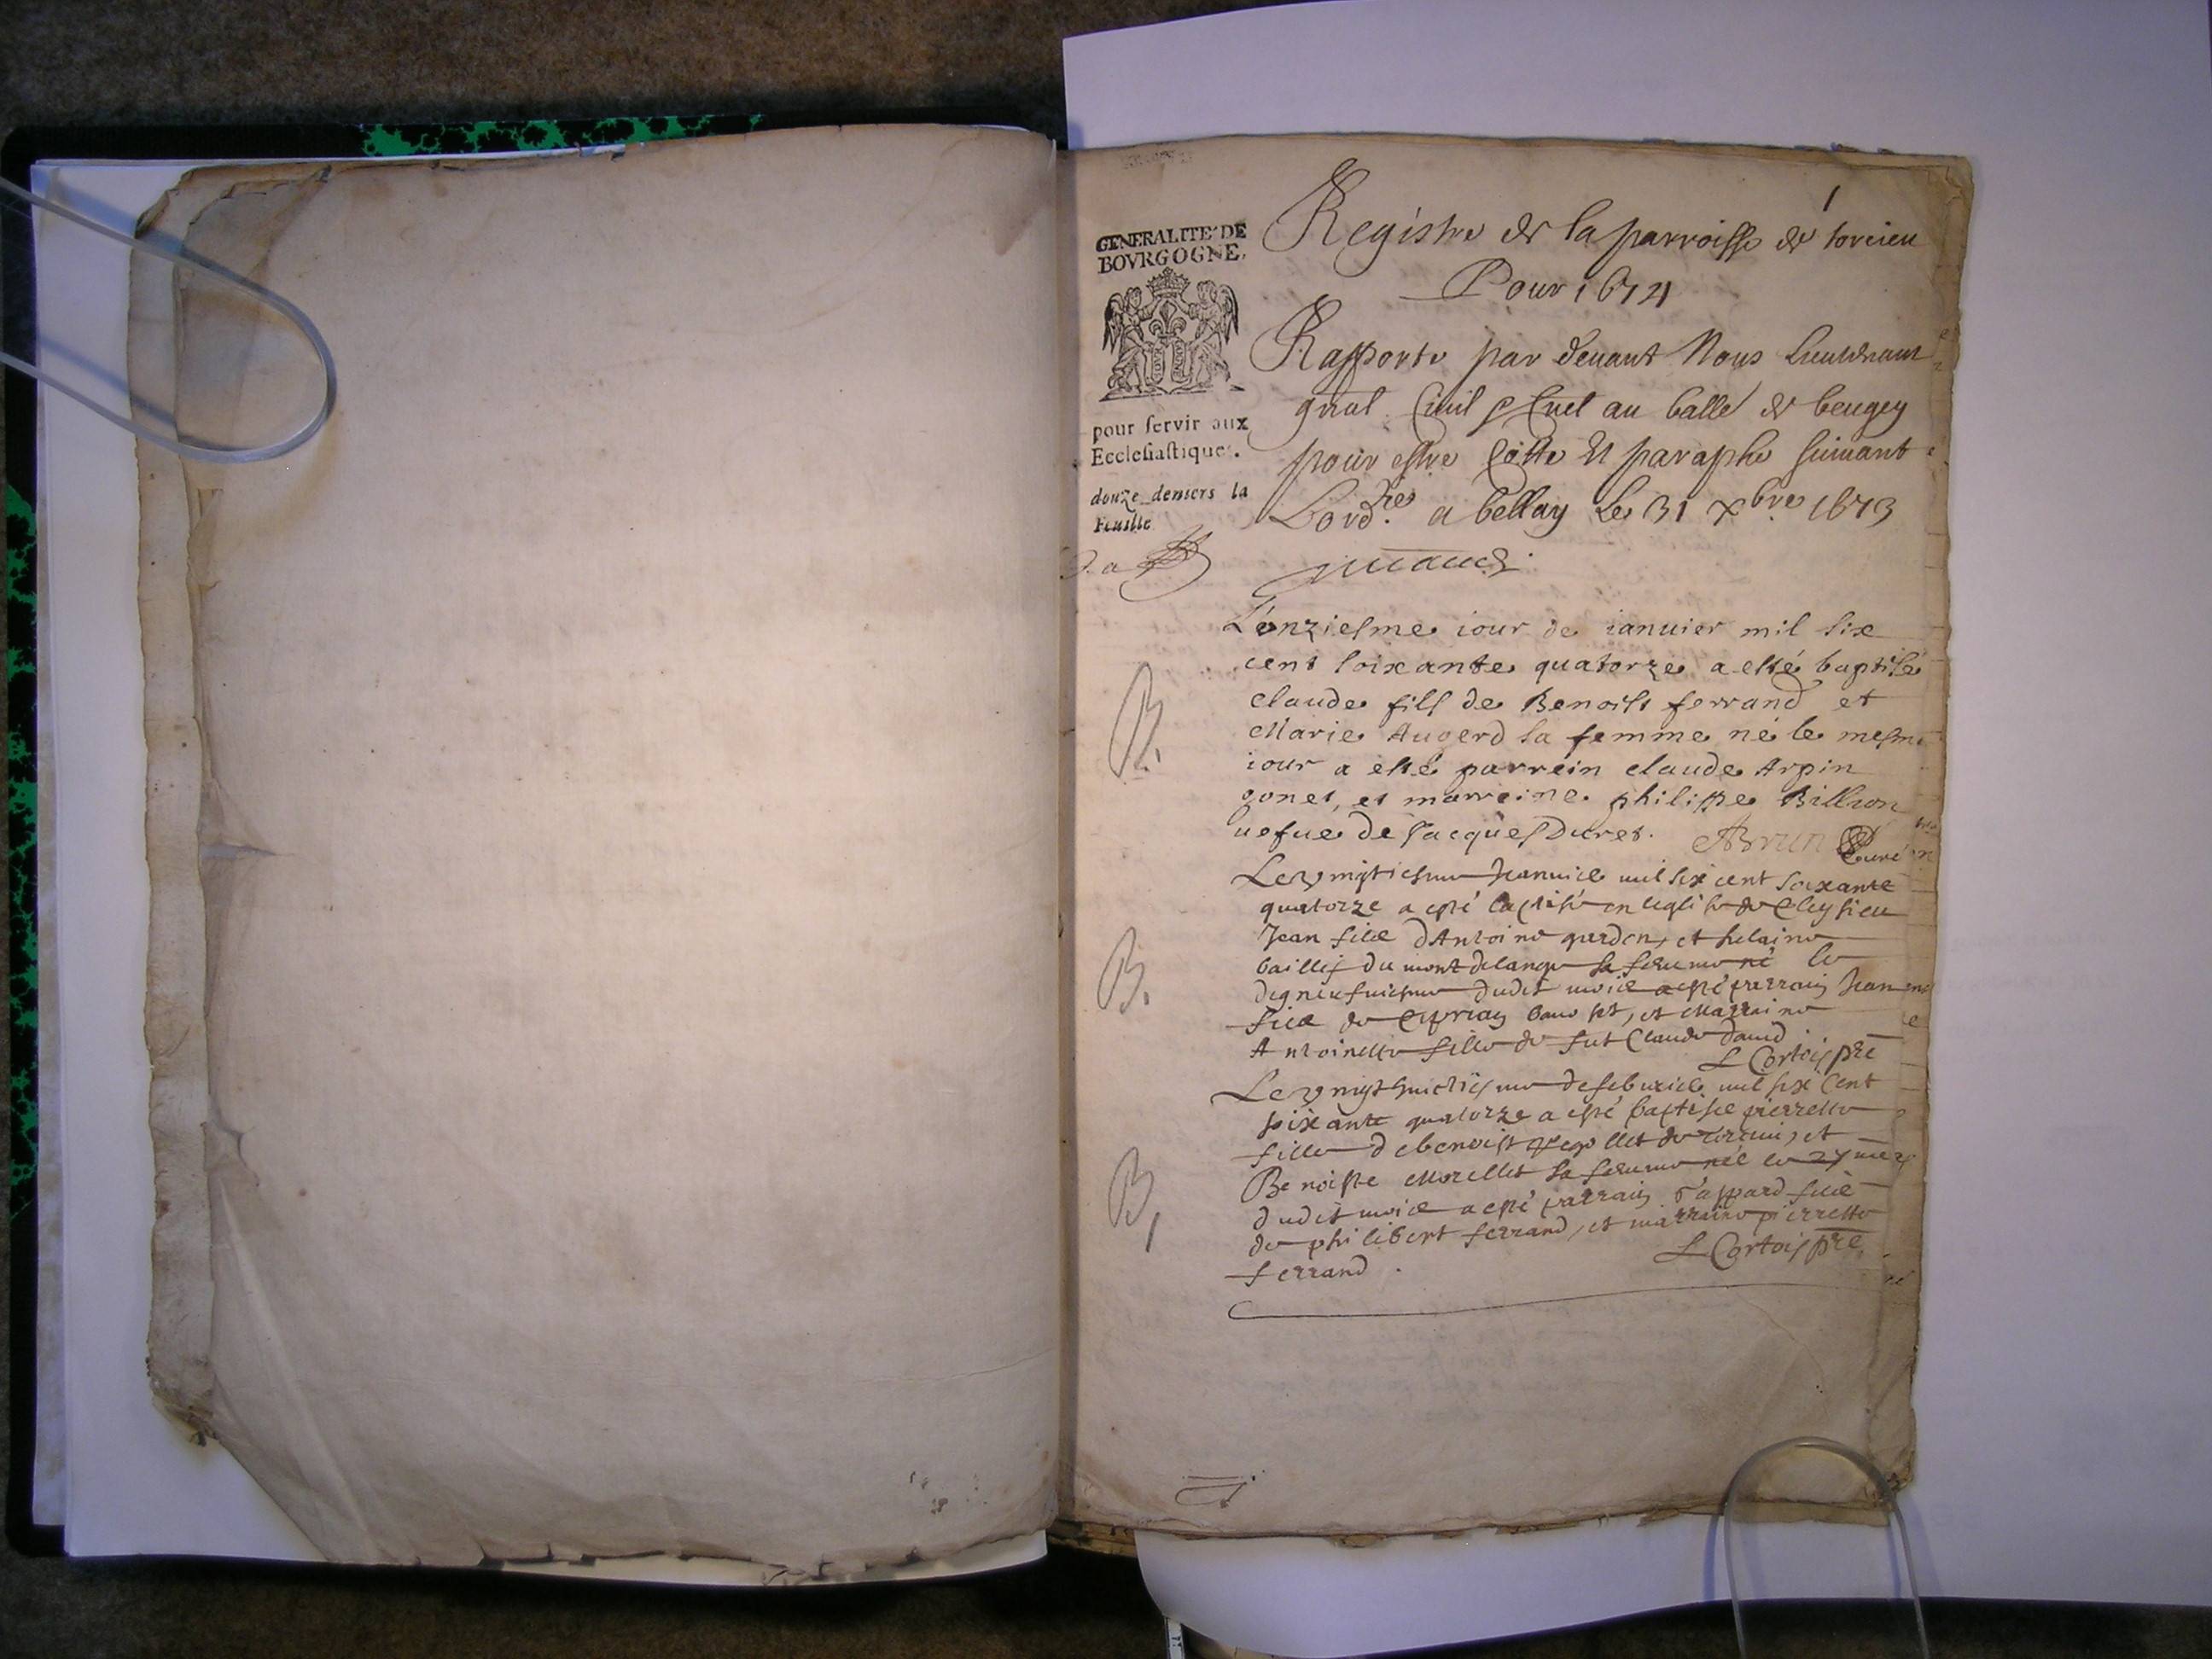 1
GENERALITE' DE
BOVRGOGNE,
pour servir aux
Ecclesiastiques.
douze deniers la
Feuille
Registre de la parroisse de torcieu
Pour 1674
Rapporte par devant Nous Lieutenant
gnal Civil & Cnel au balle de beugey
pour estre Cotte Et paraphe suivant
Lord.res a bellay Le 31 xbre 1673
L'onziesme iour de ianuier mil six
cent soixante quatorze a esté baptisé
claude fils de Benoist ferrand et
Marie Augerd sa femme né le mesme
iour a esté parrein claude Arpin
gonet, et marreine philippe Billion
uefue de Jacques Duret. ABrun Curé
B.
Le vingtiesme Januier mil six cent soixante
quatorze a esté baptisé en leglise de Cleysieu
Jean filz dAntoine gardon, et helaine
baillif du mont delange sa femme né le
digneufuiesme dudit moie a esté parrain Jean
filz de Cyprian , et Marraine
Antoinette fille de fut Claude dauid
L Cortois pre
B.
Le vingt huictiesme de feburier mil six cent
soixante quatorze a esté baptisee pierrette
fille de benoist de torcieu, et
Benoiste Morellet sa femme née le 27 me
dudit moie a esté parrain gaspard filz
de philibert ferrand, et marraine pierrette
ferrand. L Cortois pre
B,